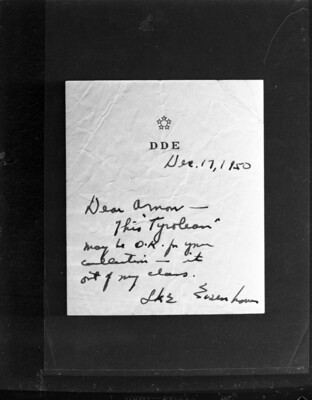 DDE
Dec. 17, 1950
Dear Amon —
This "Tyrolean"
may be O.K. for your
collection — it
out of my class.
Ike Eisenhower